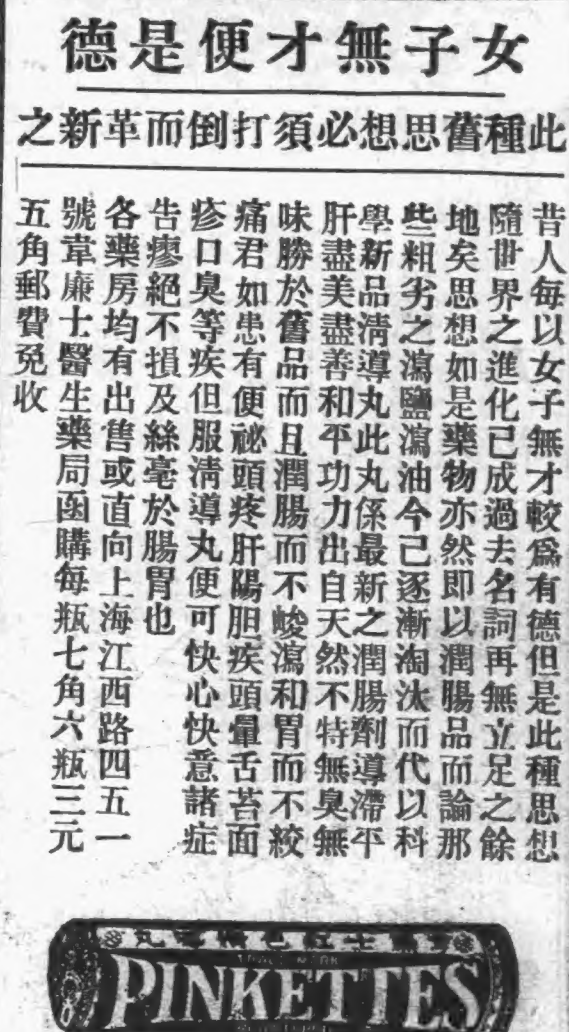 女子無才便是德
此種舊思想必須打倒而革新之
昔人每以女子無才較爲有德但是此種思想
隨世界之進化已成過去名詞再無立足之餘
地矣思想如是藥物亦然即以潤腸品而論那
些粗劣之瀉鹽瀉油今已逐漸淘汰而代以科
學新品淸導丸此丸係最新之潤腸劑導滯平
肝盡美盡善和平功力出自天然不特無臭無
味勝於舊品而且潤腸而不峻瀉和胃而不絞
痛君如患有便祕頭疼肝陽胆疾頭暈舌苔面
疹口臭等疾但服淸導丸便可快心快意諸症
告瘳絕不損及絲毫於腸胃也
各藥房均有出售或直向上海江西路四五一
號韋廉士醫生藥局函購每瓶七角六瓶三元
五角郵費免收
TRADE MARK
PINKETTES